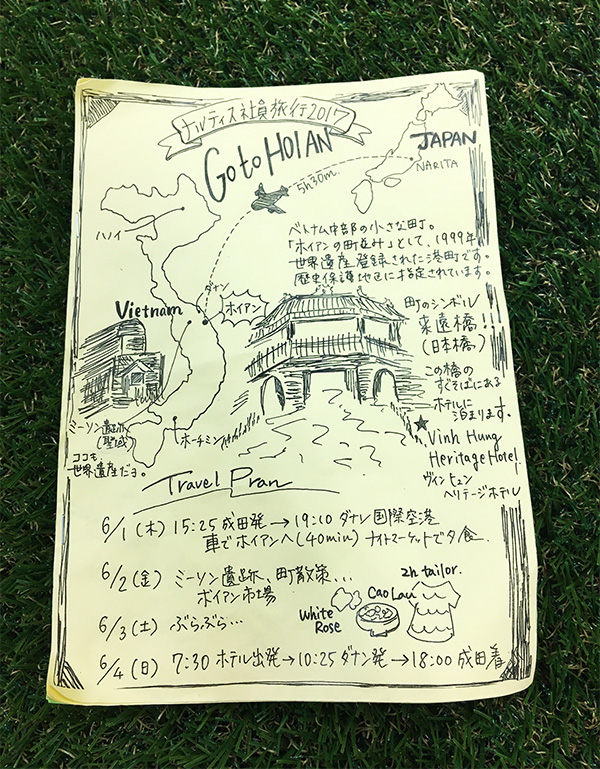 ナルティス社員旅行2017
Go to HOI AN
JAPAN
NARITA
5h30m.
ハノイ
ベトナム中部の小さな町。
「ホイアンの町並み」として、1999年
世界遺産登録された港町です。
歴史保護地区に指定されています。
ダナン
Vietnam
ホイアン
町のシンボル
来遠橋!!
(日本橋)
この橋の
すぐそばにある
ホテルに
泊まります。
★Vinh Hung
Heritage Hotel.
ヴィンヒュン
ヘリテージホテル
ミーソン遺跡
(聖域)
ココも
世界遺産だヨ。
ホーチミン
Travel Pran
6/1(木) 15:25 成田発→19:10 ダナン国際空港
車でホイアンへ(40min) ナイトマーケットで夕食.
6/2(金) ミーソン遺跡、町散策...
ホイアン市場
2h tailor.
Cao Lau
White
Rose
6/3(土) ぶらぶら...
6/4(日) 7:30 ホテル出発→10:25 ダナン発→18:00 成田着